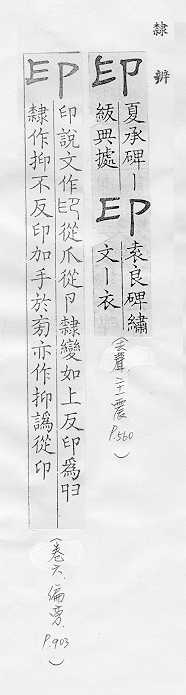 隸辨
印 夏承碑丨
紱典據
印 袁良碑繡
文丨衣
(去聲.二十一震 P.560)
印 印說文作從爪從卪隸變如上反印為
隸作抑不反印加手於旁亦作抑譌從印
(卷六.偏旁. P.903)